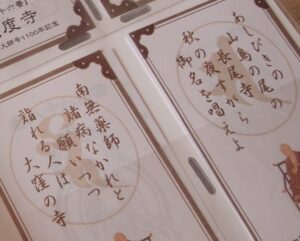 十六番)
度寺
大師号1100年記念
あしびきの
山鳥の尾の
長尾寺
秋の夜すがら
御名を唱えよ
南無薬師
諸病なかれと
願いつつ
詣れる人は
大窪の寺